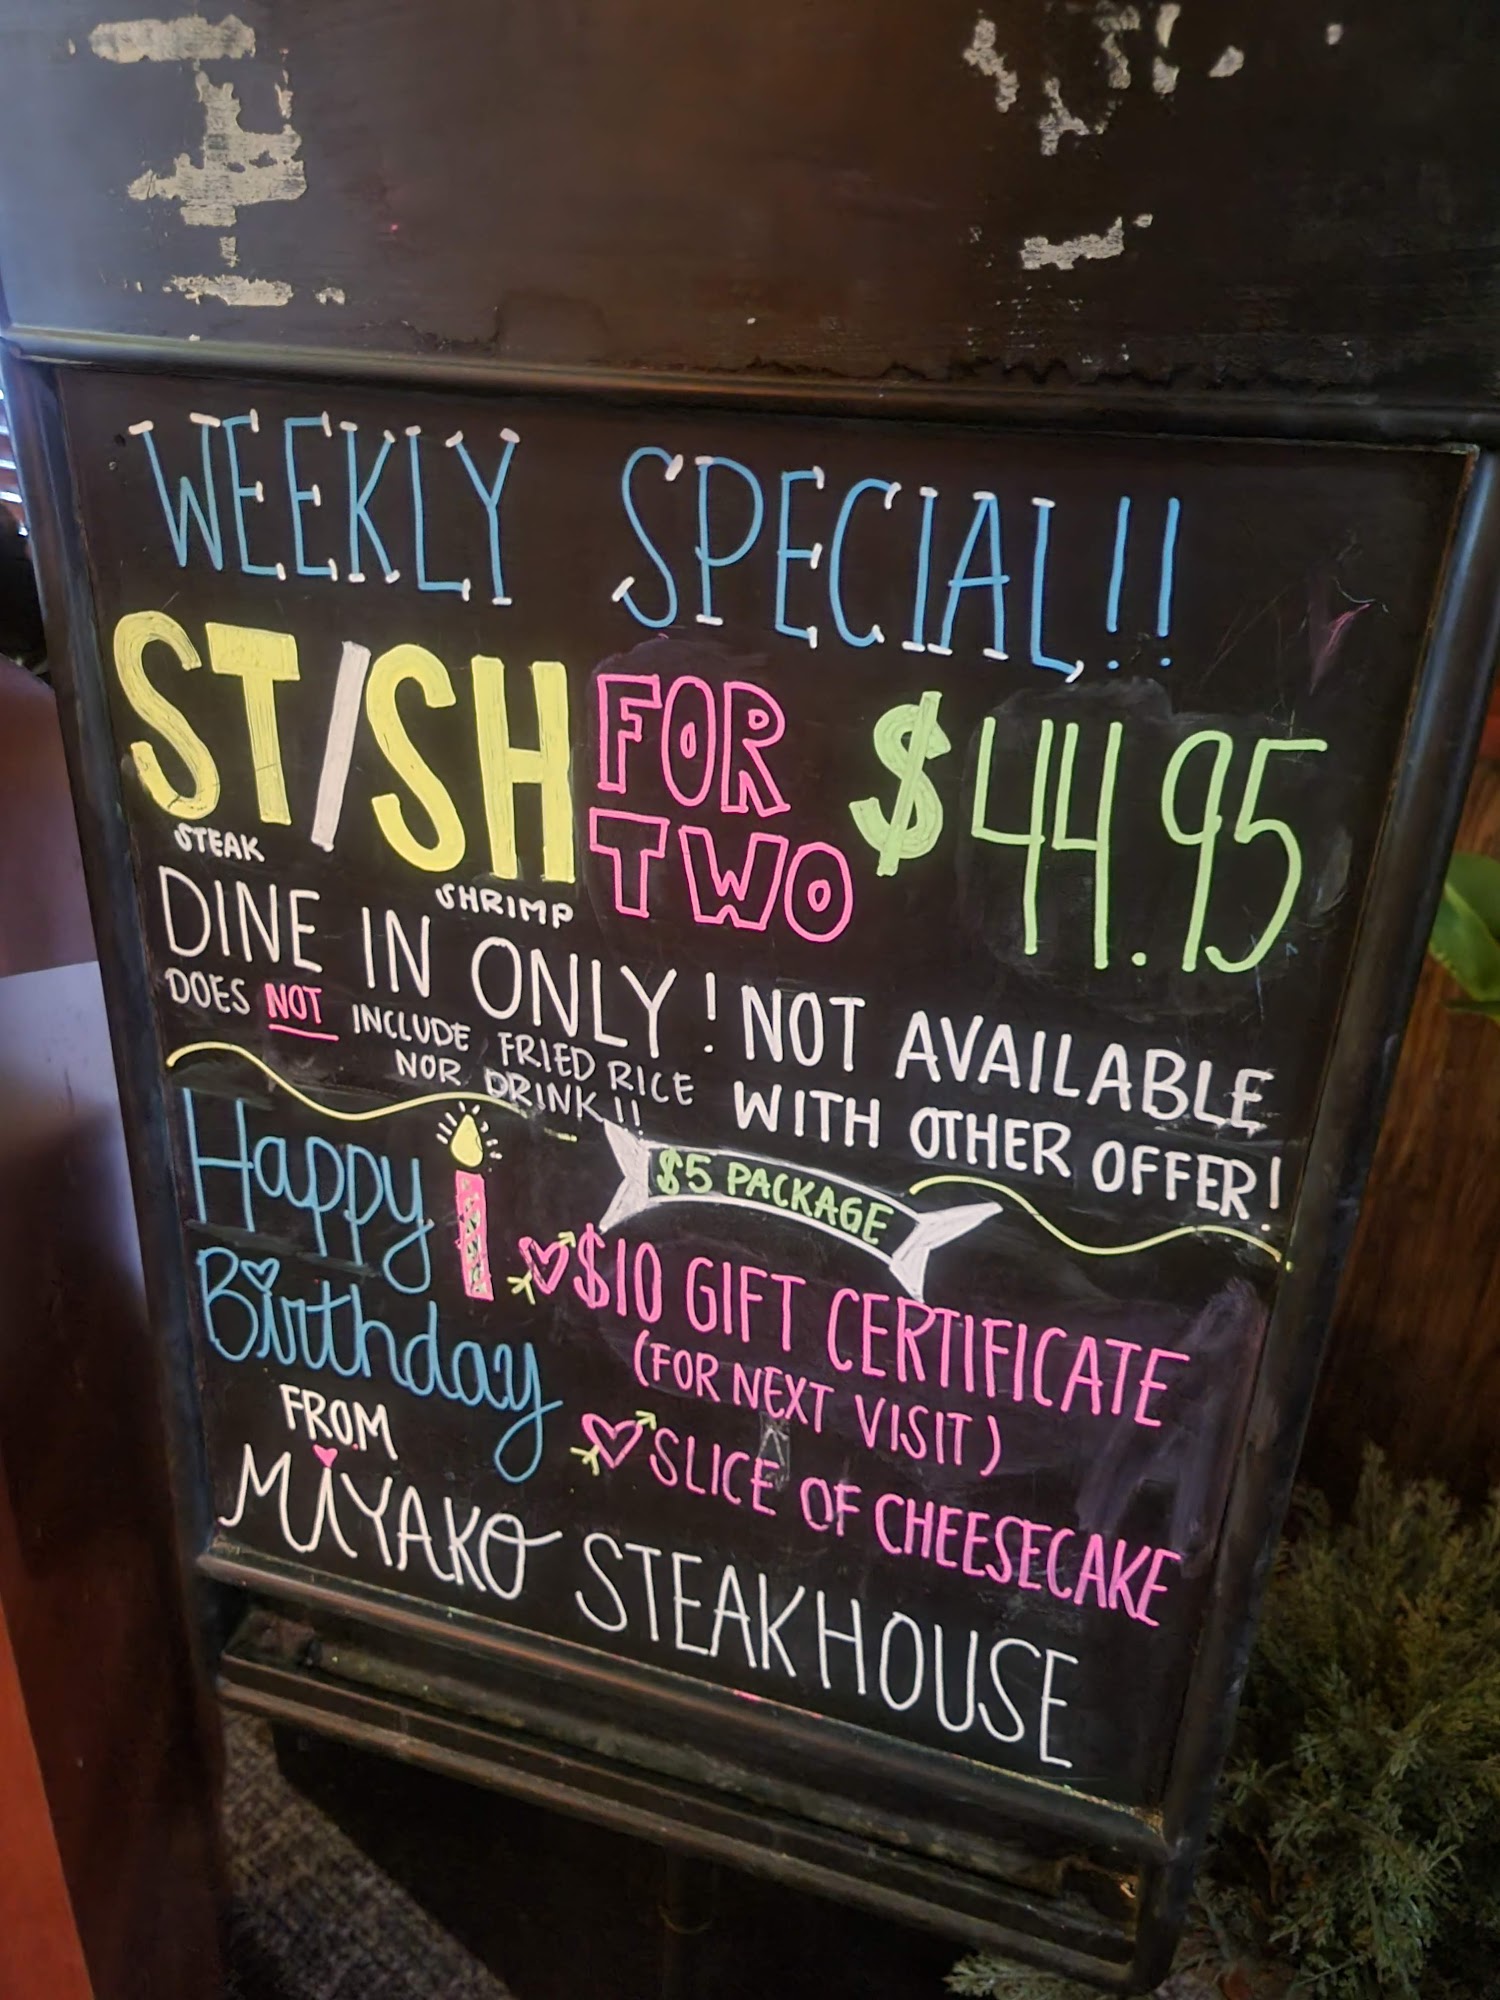 WEEKLY SPECIAL!!
ST/SH FOR TWO $44.95
STEAK SHRIMP
DINE IN ONLY! NOT AVAILABLE WITH OTHER OFFER!
DOES NOT INCLUDE FRIED RICE
NOR DRINK!!
Happy
Birthday
FROM
MIYAKO STEAKHOUSE
$5 PACKAGE
$10 GIFT CERTIFICATE
(FOR NEXT VISIT)
SLICE OF CHEESECAKE